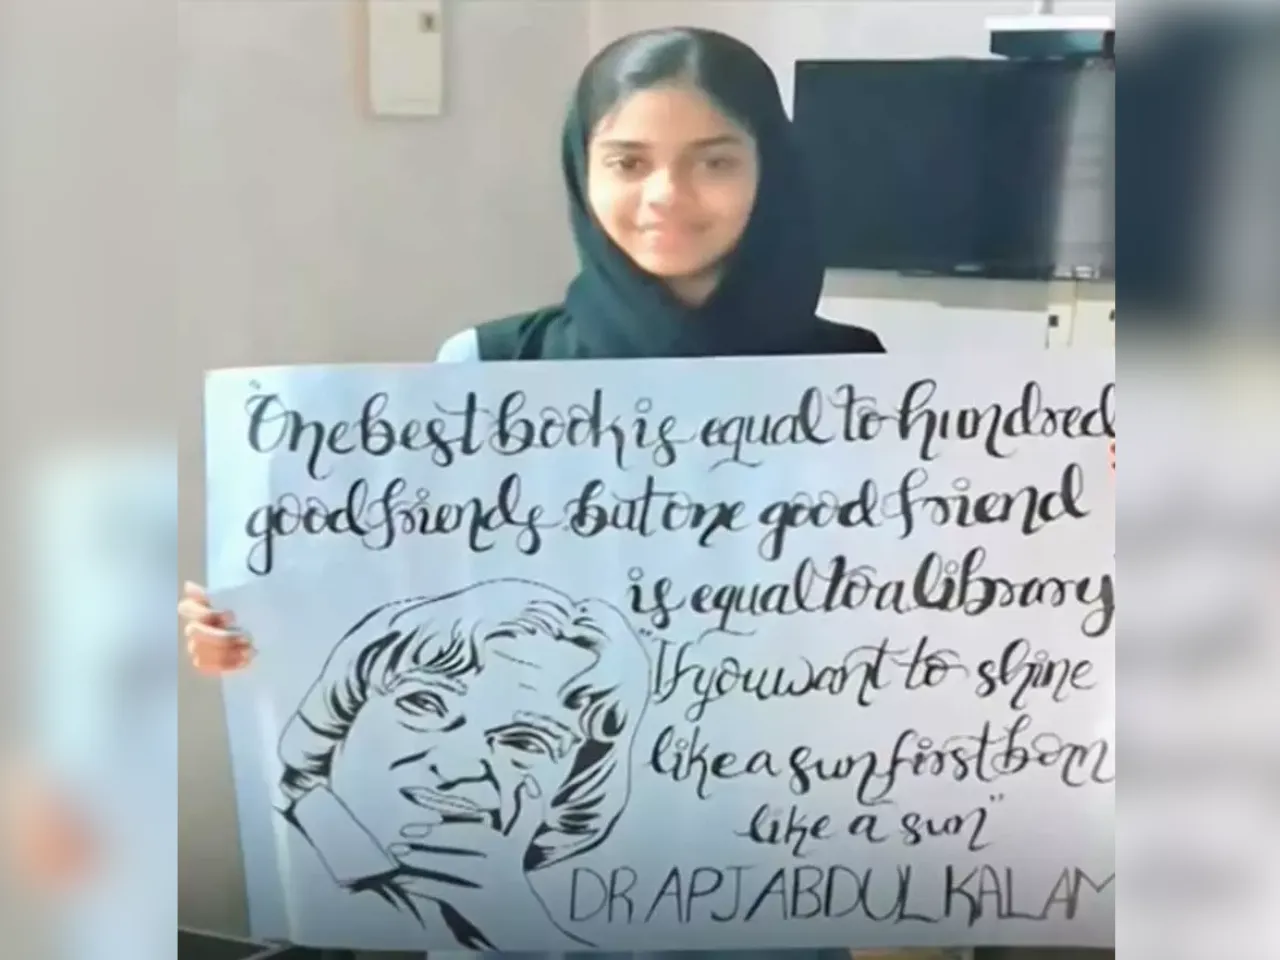 "One best book is equal to hundred
good friends but one good friend
is equal to a library"
"If you want to shine
like a sun first born
like a sun"
DR APJ ABDUL KALAM